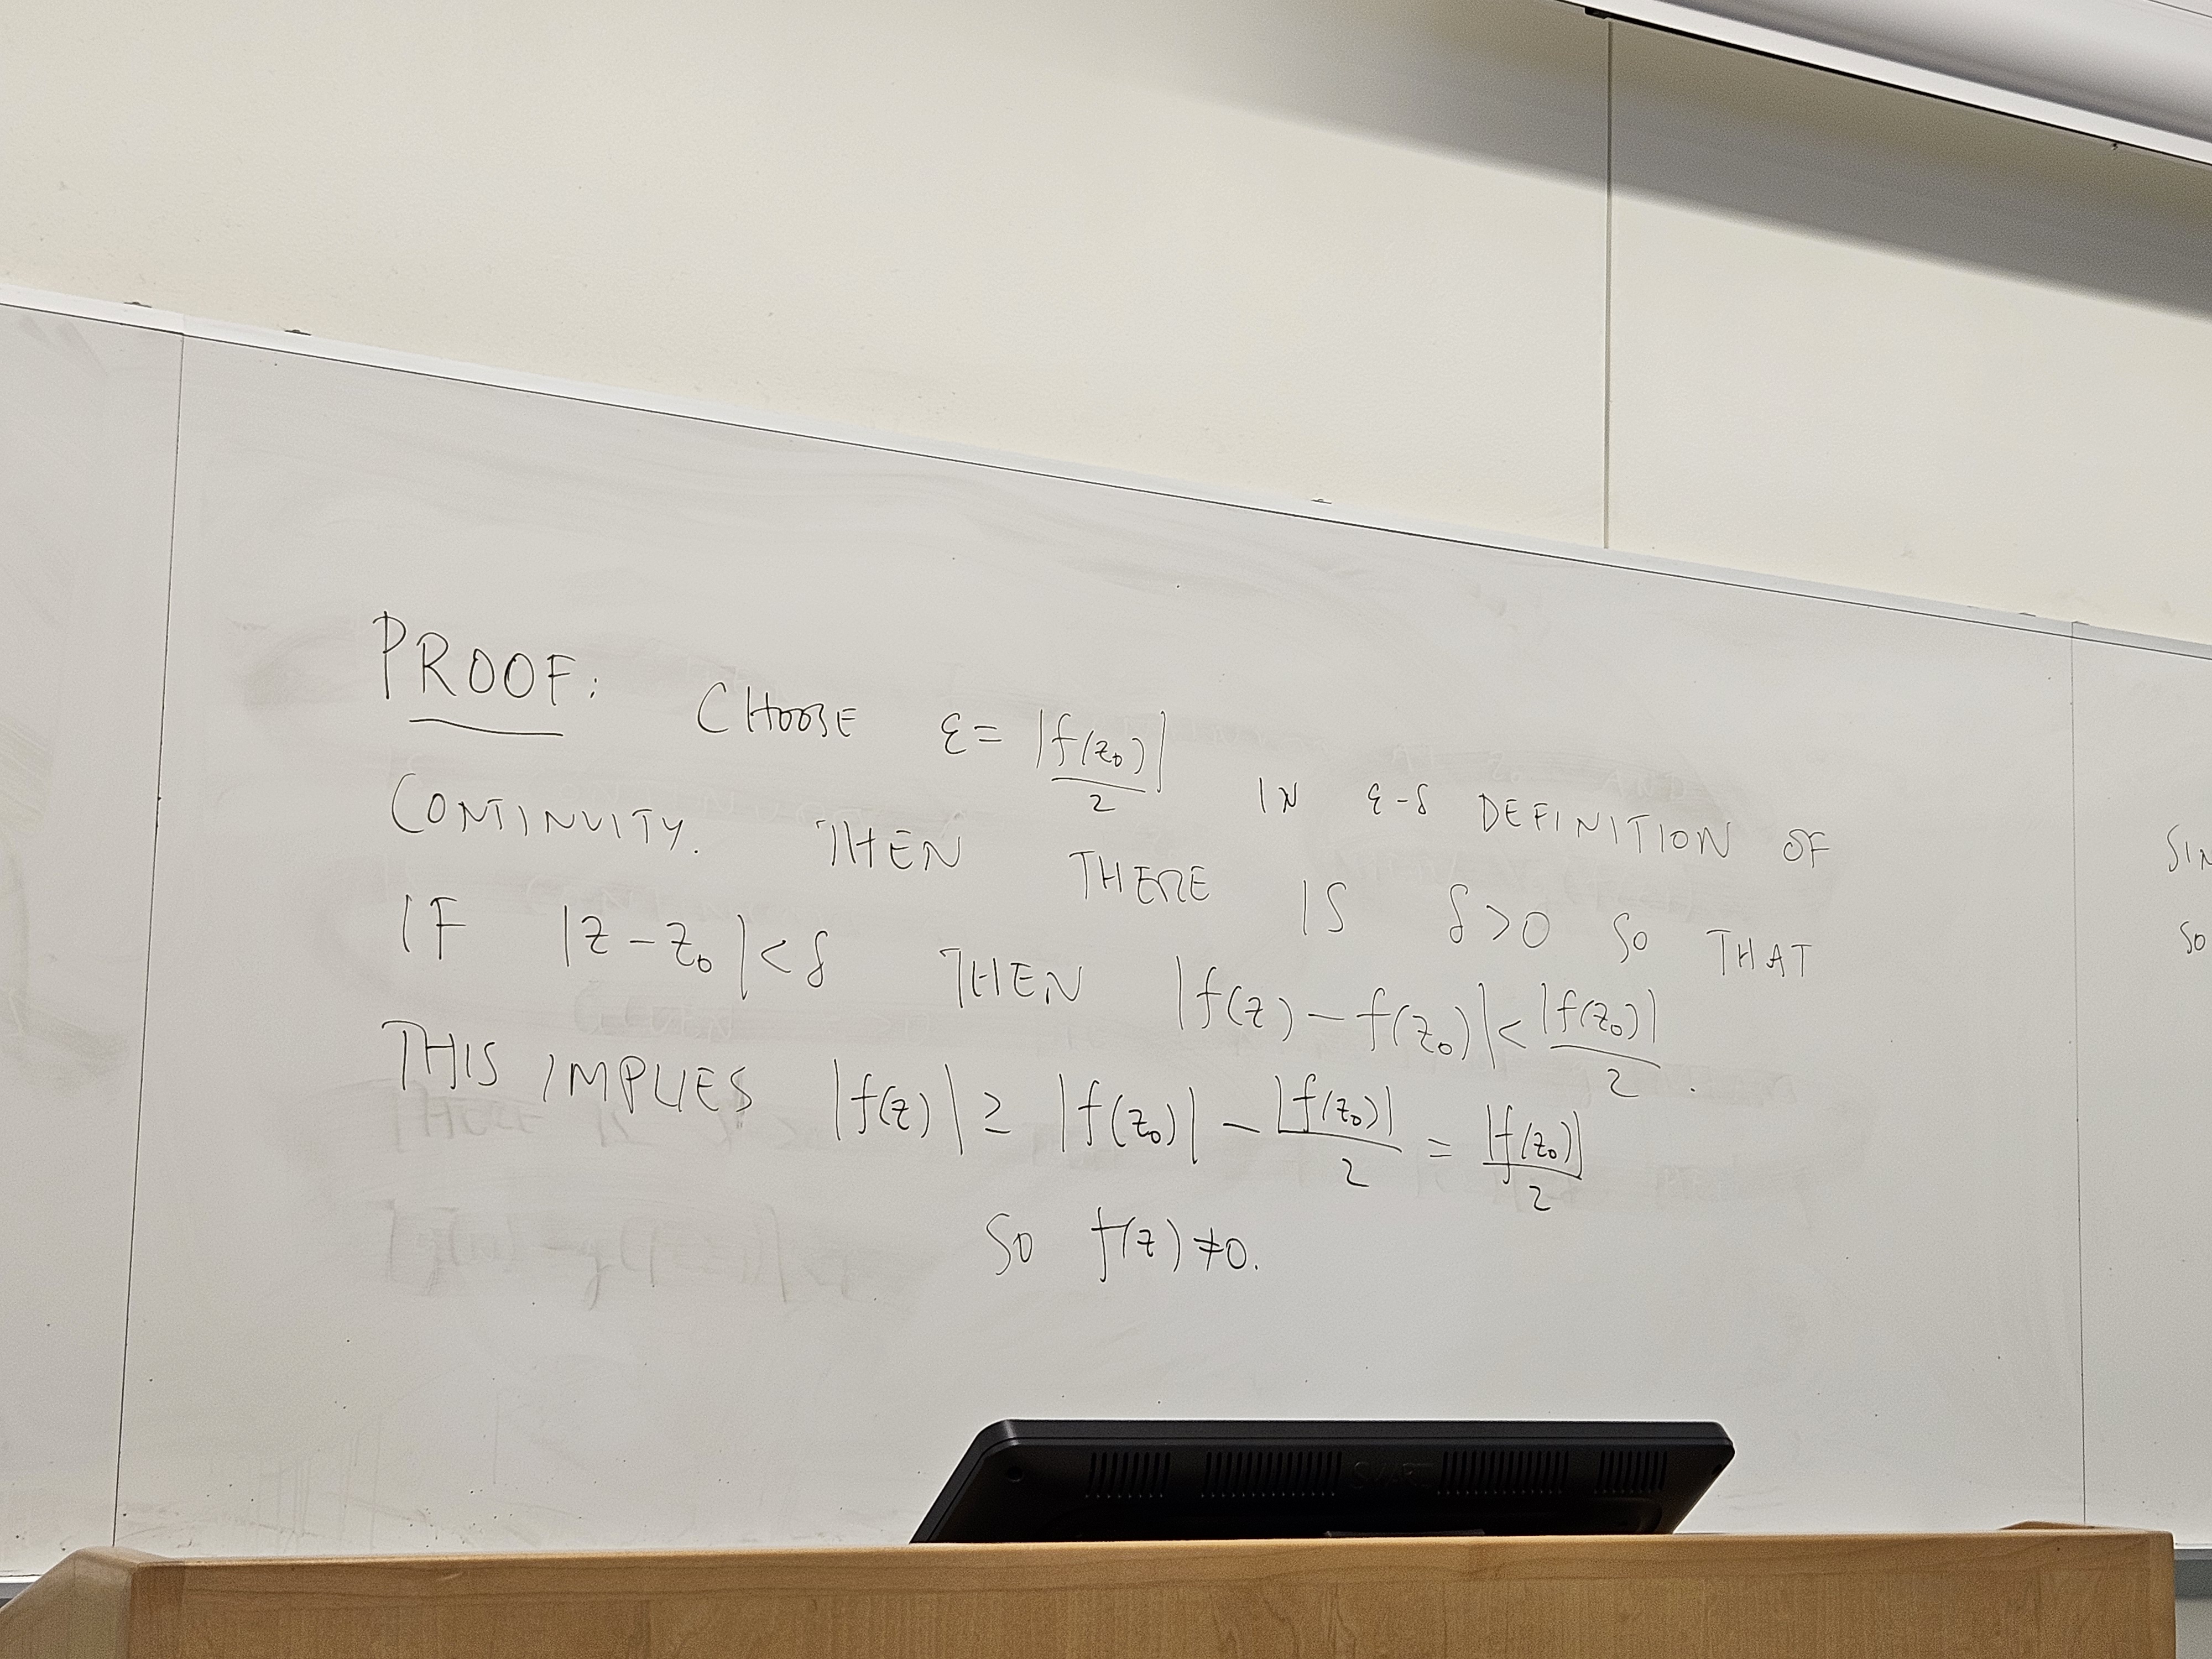 PROOF: CHOOSE ε = |f(z₀)|/2 IN ε-δ DEFINITION OF
CONTINUITY. THEN THERE IS δ>0 SO THAT
IF |z-z₀|<δ THEN |f(z)-f(z₀)|<|f(z₀)|/2.
THIS IMPLIES |f(z)| ≥ |f(z₀)| - |f(z₀)|/2 = |f(z₀)|/2
SO f(z)≠0.
SO